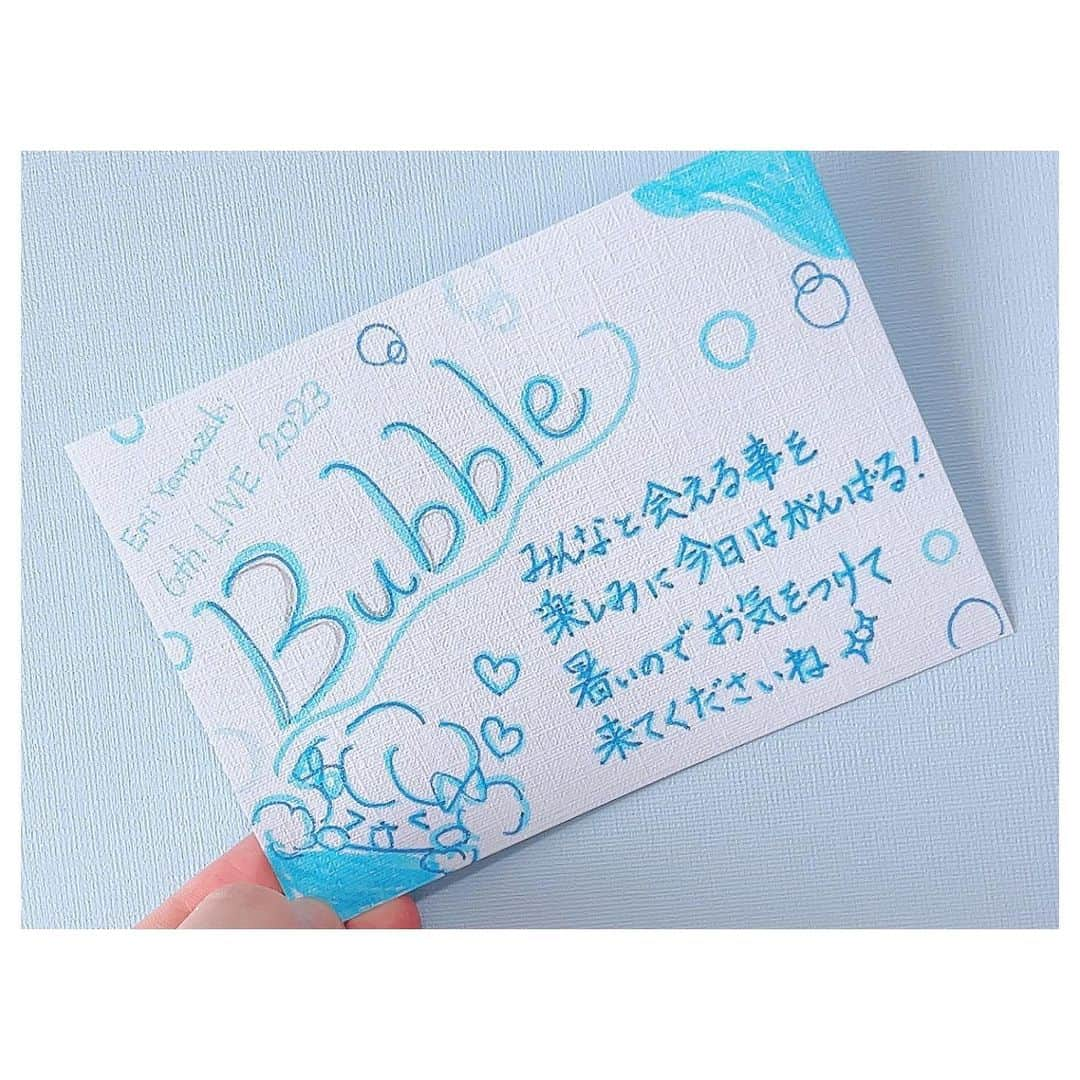 Erii Yamazaki
6th LIVE 2023
Bubble
みんなと会える事を
楽しみに今日はがんばる!
暑いのでお気をつけて
来てくださいね